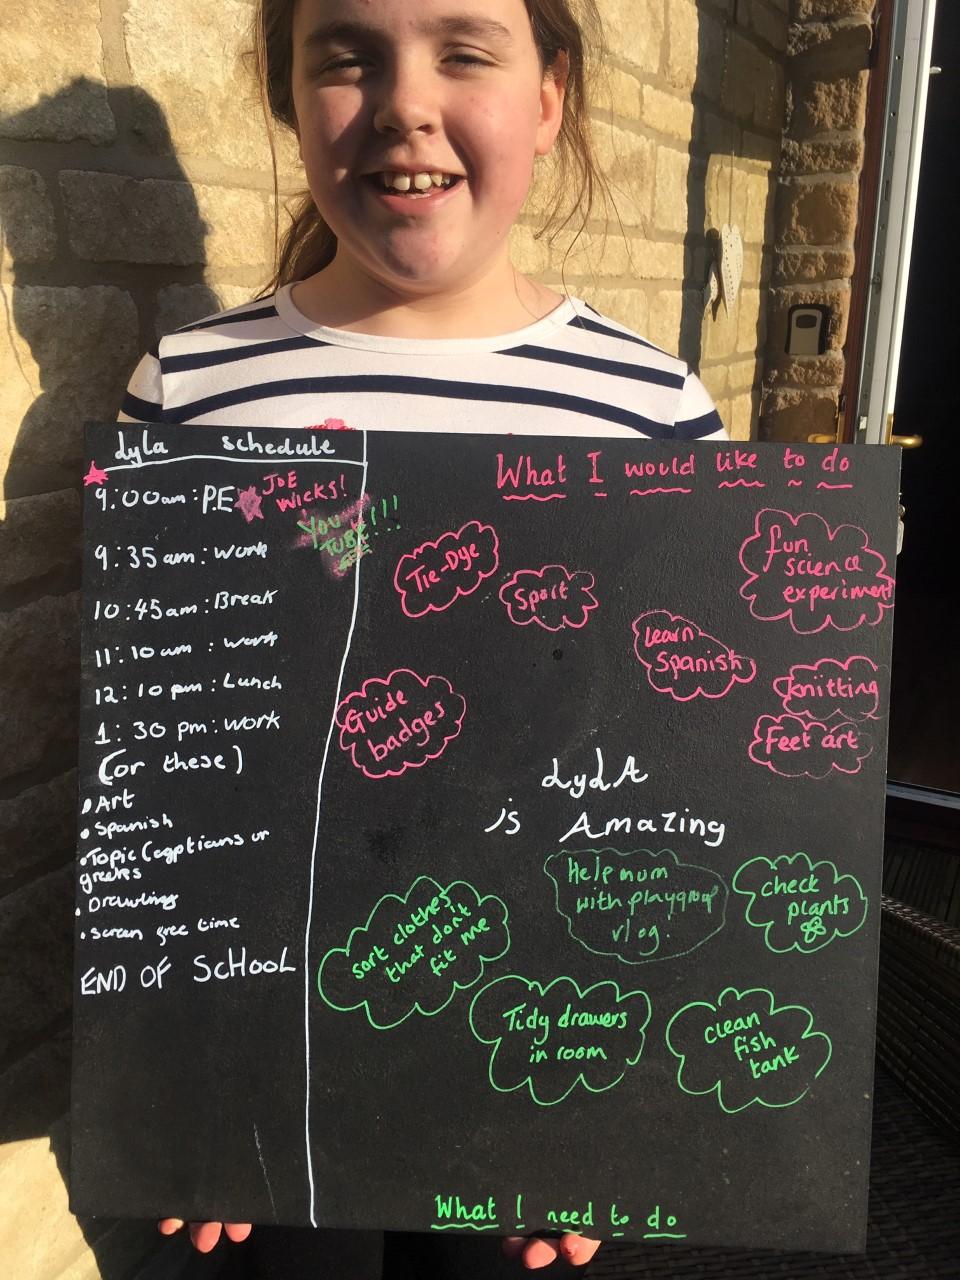 Lyla schedule
9:00am: P.E
JOE
WICKS!
YOU
TUBE!!!
9:35 am: Work
10:45am: Break
11:10 am : work
12:10 pm: Lunch
1:30 pm: work
(or these)
• Art
• Spanish
• Topic (egptians or
greeks
• Drawling
• screen free time
END OF SCHOOL
What I would like to do
Tie-Dye
Sport
fun
science
experiment
Learn
Spanish
knitting
Feet art
Guide
badges
LyLA
is Amazing
Help mum
with playgroup
vlog.
check
plants
sort clothes
that don't
fit me
Tidy drawers
in room
clean
fish
tank
What I need to do